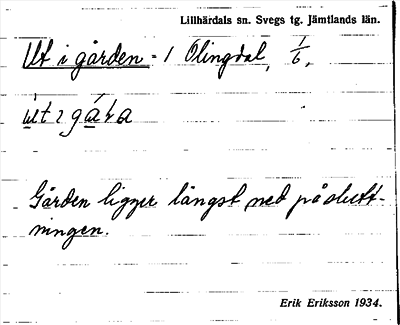 Lillhärdals sn. Svegs tg. Jämtlands län.
Ut i gården = 1 Olingdal, 1/6,
Gården ligger längst ned på slutt-
ningen.
Erik Eriksson 1934.